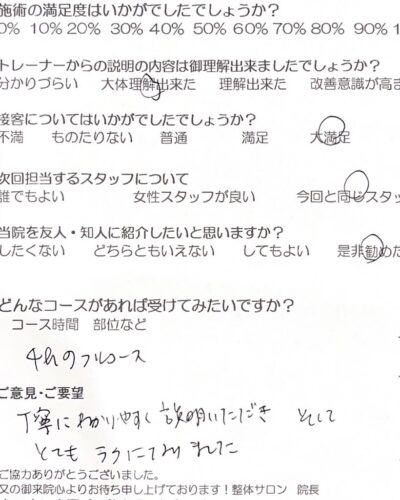 施術の満足度はいかがでしたでしょうか？
0% 10% 20% 30% 40% 50% 60% 70% 80% 90% 1
トレーナーからの説明の内容は御理解出来ましたでしょうか？
分かりづらい 大体理解出来た 理解出来た 改善意識が高ま
接客についてはいかがでしたでしょうか？
不満 ものたりない 普通 満足 大満足
次回担当するスタッフについて
誰でもよい 女性スタッフが良い 今回と同じスタッ
当院を友人・知人に紹介したいと思いますか？
したくない どちらともいえない してもよい 是非勧めた
どんなコースがあれば受けてみたいですか？
コース時間 部位など
4hのフルコース
ご意見・ご要望
丁寧にわかりやすく説明いただき そして
とても ラクになりました
ご協力ありがとうございました。
又の御来院心よりお待ち申し上げております！整体サロン 院長